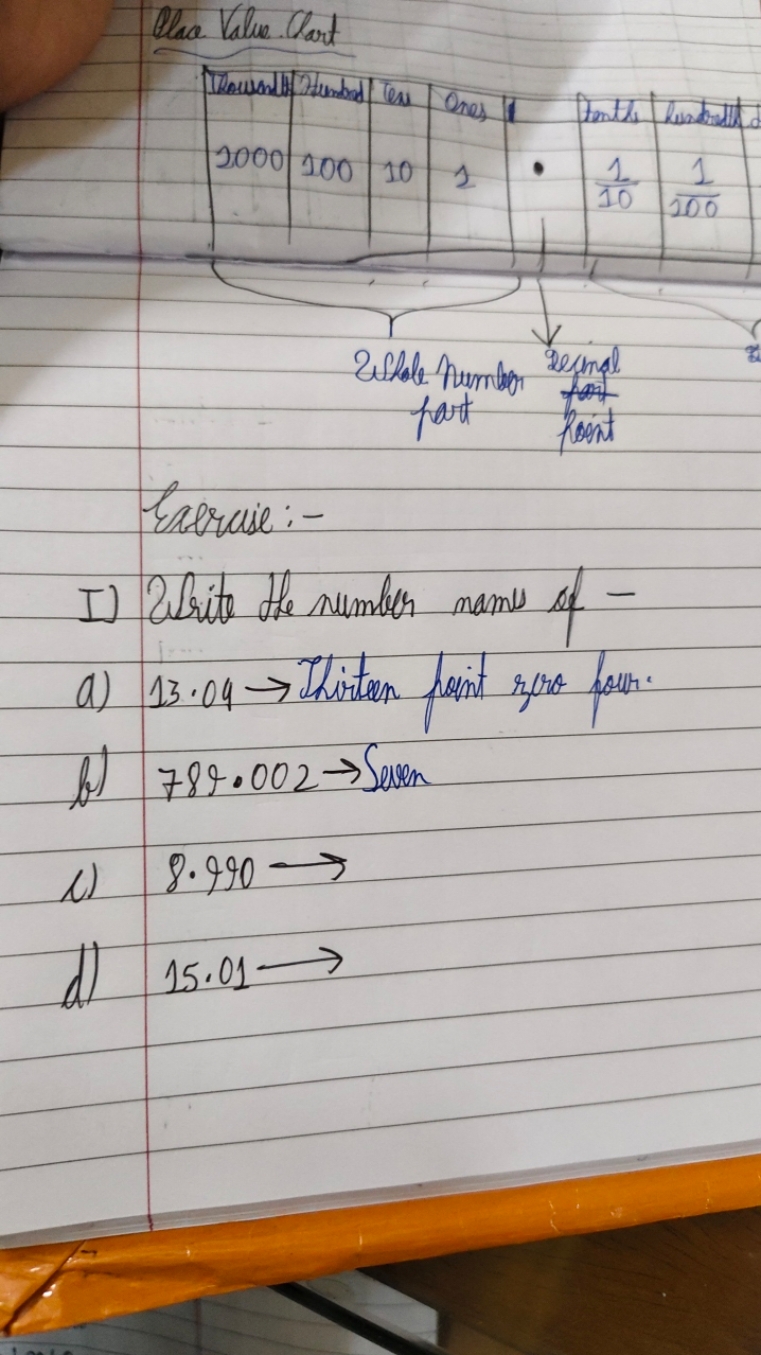 Place Value Chart
Thousands Hundred Tens Ones Tenths hundredths
1000 100 10 1 . 1/10 1/100
Whole Number part
Decimal
part
point
Exercise :-
I) Write the number names of -
a) 13.04 → Thirteen point zero four.
b) 789.002 → Seven
c) 8.990 →
d) 15.01 →